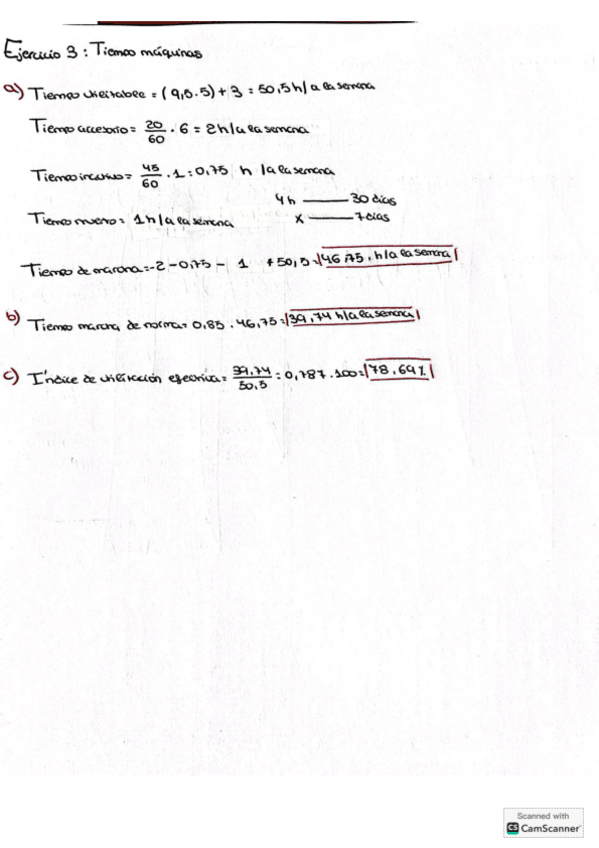 Ejercicio 3: Tiempo máquinas
a) Tiempo utilizable = (9,5.5) + 3 = 50,5 h/a la semana
Tiempo accesorio = 20/60 . 6 = 2h/a la semana
Tiempo inactivo = 45/60 . 1 = 0,75 h /a la semana
4h — 30 días
Tiempo muerto = 1h/a la semana
x — 7 días
Tiempo de marcha = -2 - 0,75 - 1 + 50,5 = 46,75 h/a la semana
b) Tiempo marcha de norma = 0,85 . 46,75 = 39,74 h/a la semana
c) Índice de utilización efectiva = 39,74/50,5 = 0,787 . 100 = 78,69%
Scanned with
CS CamScanner